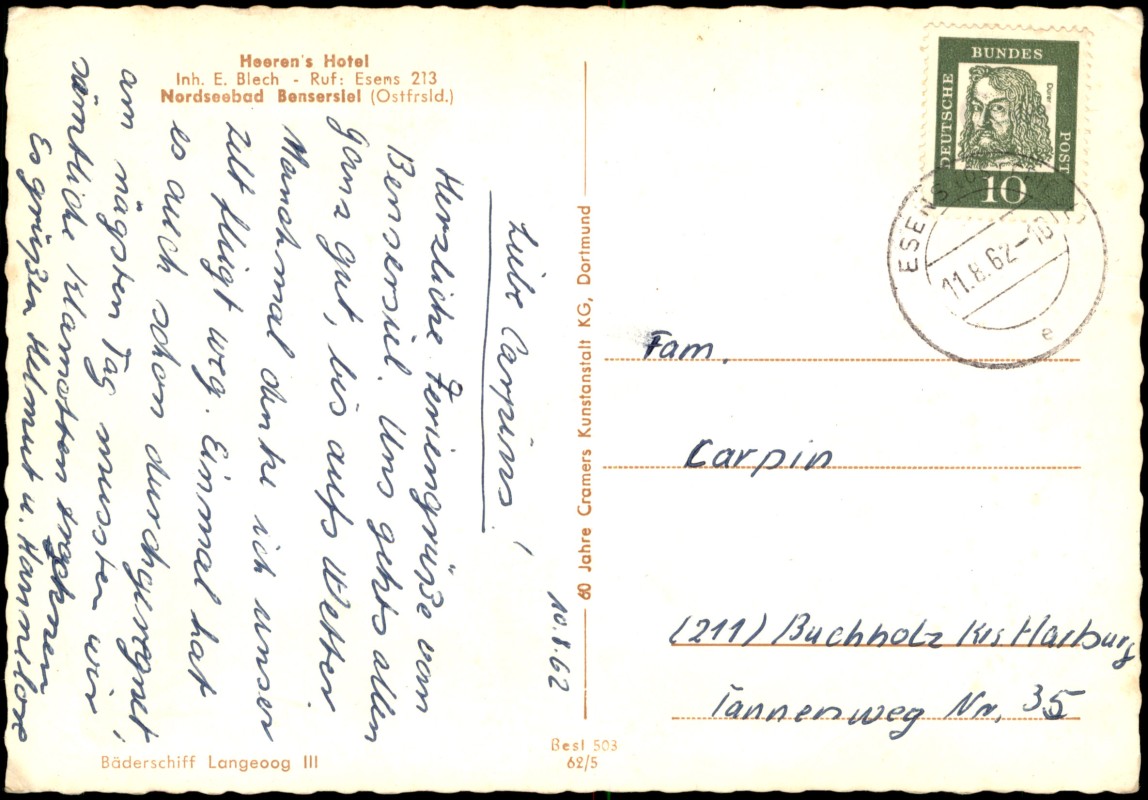 Heeren's Hotel
Inh. E. Blech - Ruf: Esens 213
Nordseebad Bensersiel (Ostfrsld.)
10.8.62
Liebe Carpins!
Herzliche Feriengrüße von
Bensersiel. Uns gehts allen
ganz gut, bis aufs Wetter.
Manchmal denke ich unser
Zelt fliegt weg. Einmal hat
es auch schon durchgeregnet,
am nägsten Tag mussten wir
sämtliche Klamotten trocknen
Es grüßen Helmut u. Hannelore
Bäderschiff Langeoog III
60 Jahre Cramers Kunstanstalt KG, Dortmund
Best 503
62/5
DEUTSCHE BUNDES POST
Dürer
10
ESENS
11.8.62-10
e
Fam.
Carpin
(211) Buchholz Krs. Harburg
Tannenweg Nr. 35